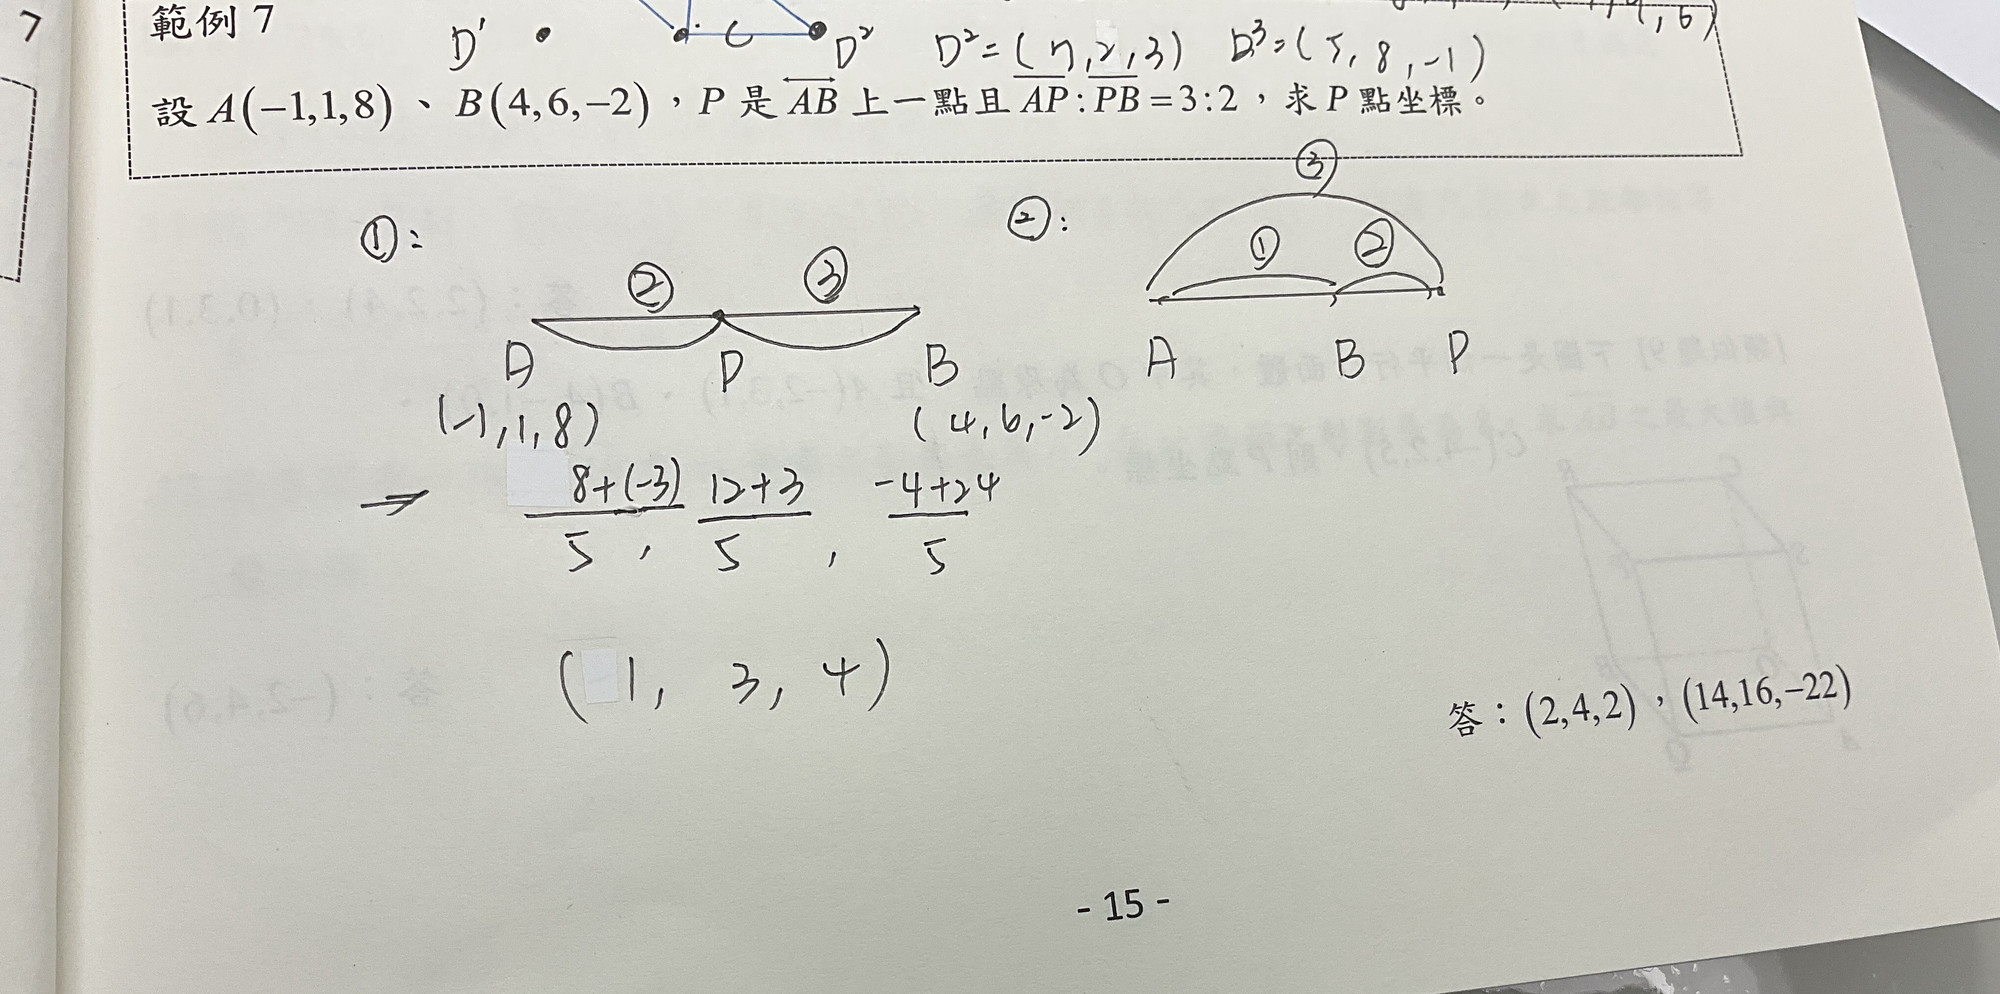 7
範例 7
D' C D² D²=(7,2,3) D³=(5,8,-1)
,6)
設 A(−1,1,8)、B(4,6,−2),P 是 AB 上一點且 AP:PB=3:2,求 P 點坐標。
①:
② ③
A P B
(-1,1,8) (4,6,-2)
⇒ 8+(-3)/5 , 12+3/5 , -4+24/5
(1, 3, 4)
②:
③
① ②
A B P
答:(2,4,2),(14,16,−22)
- 15 -